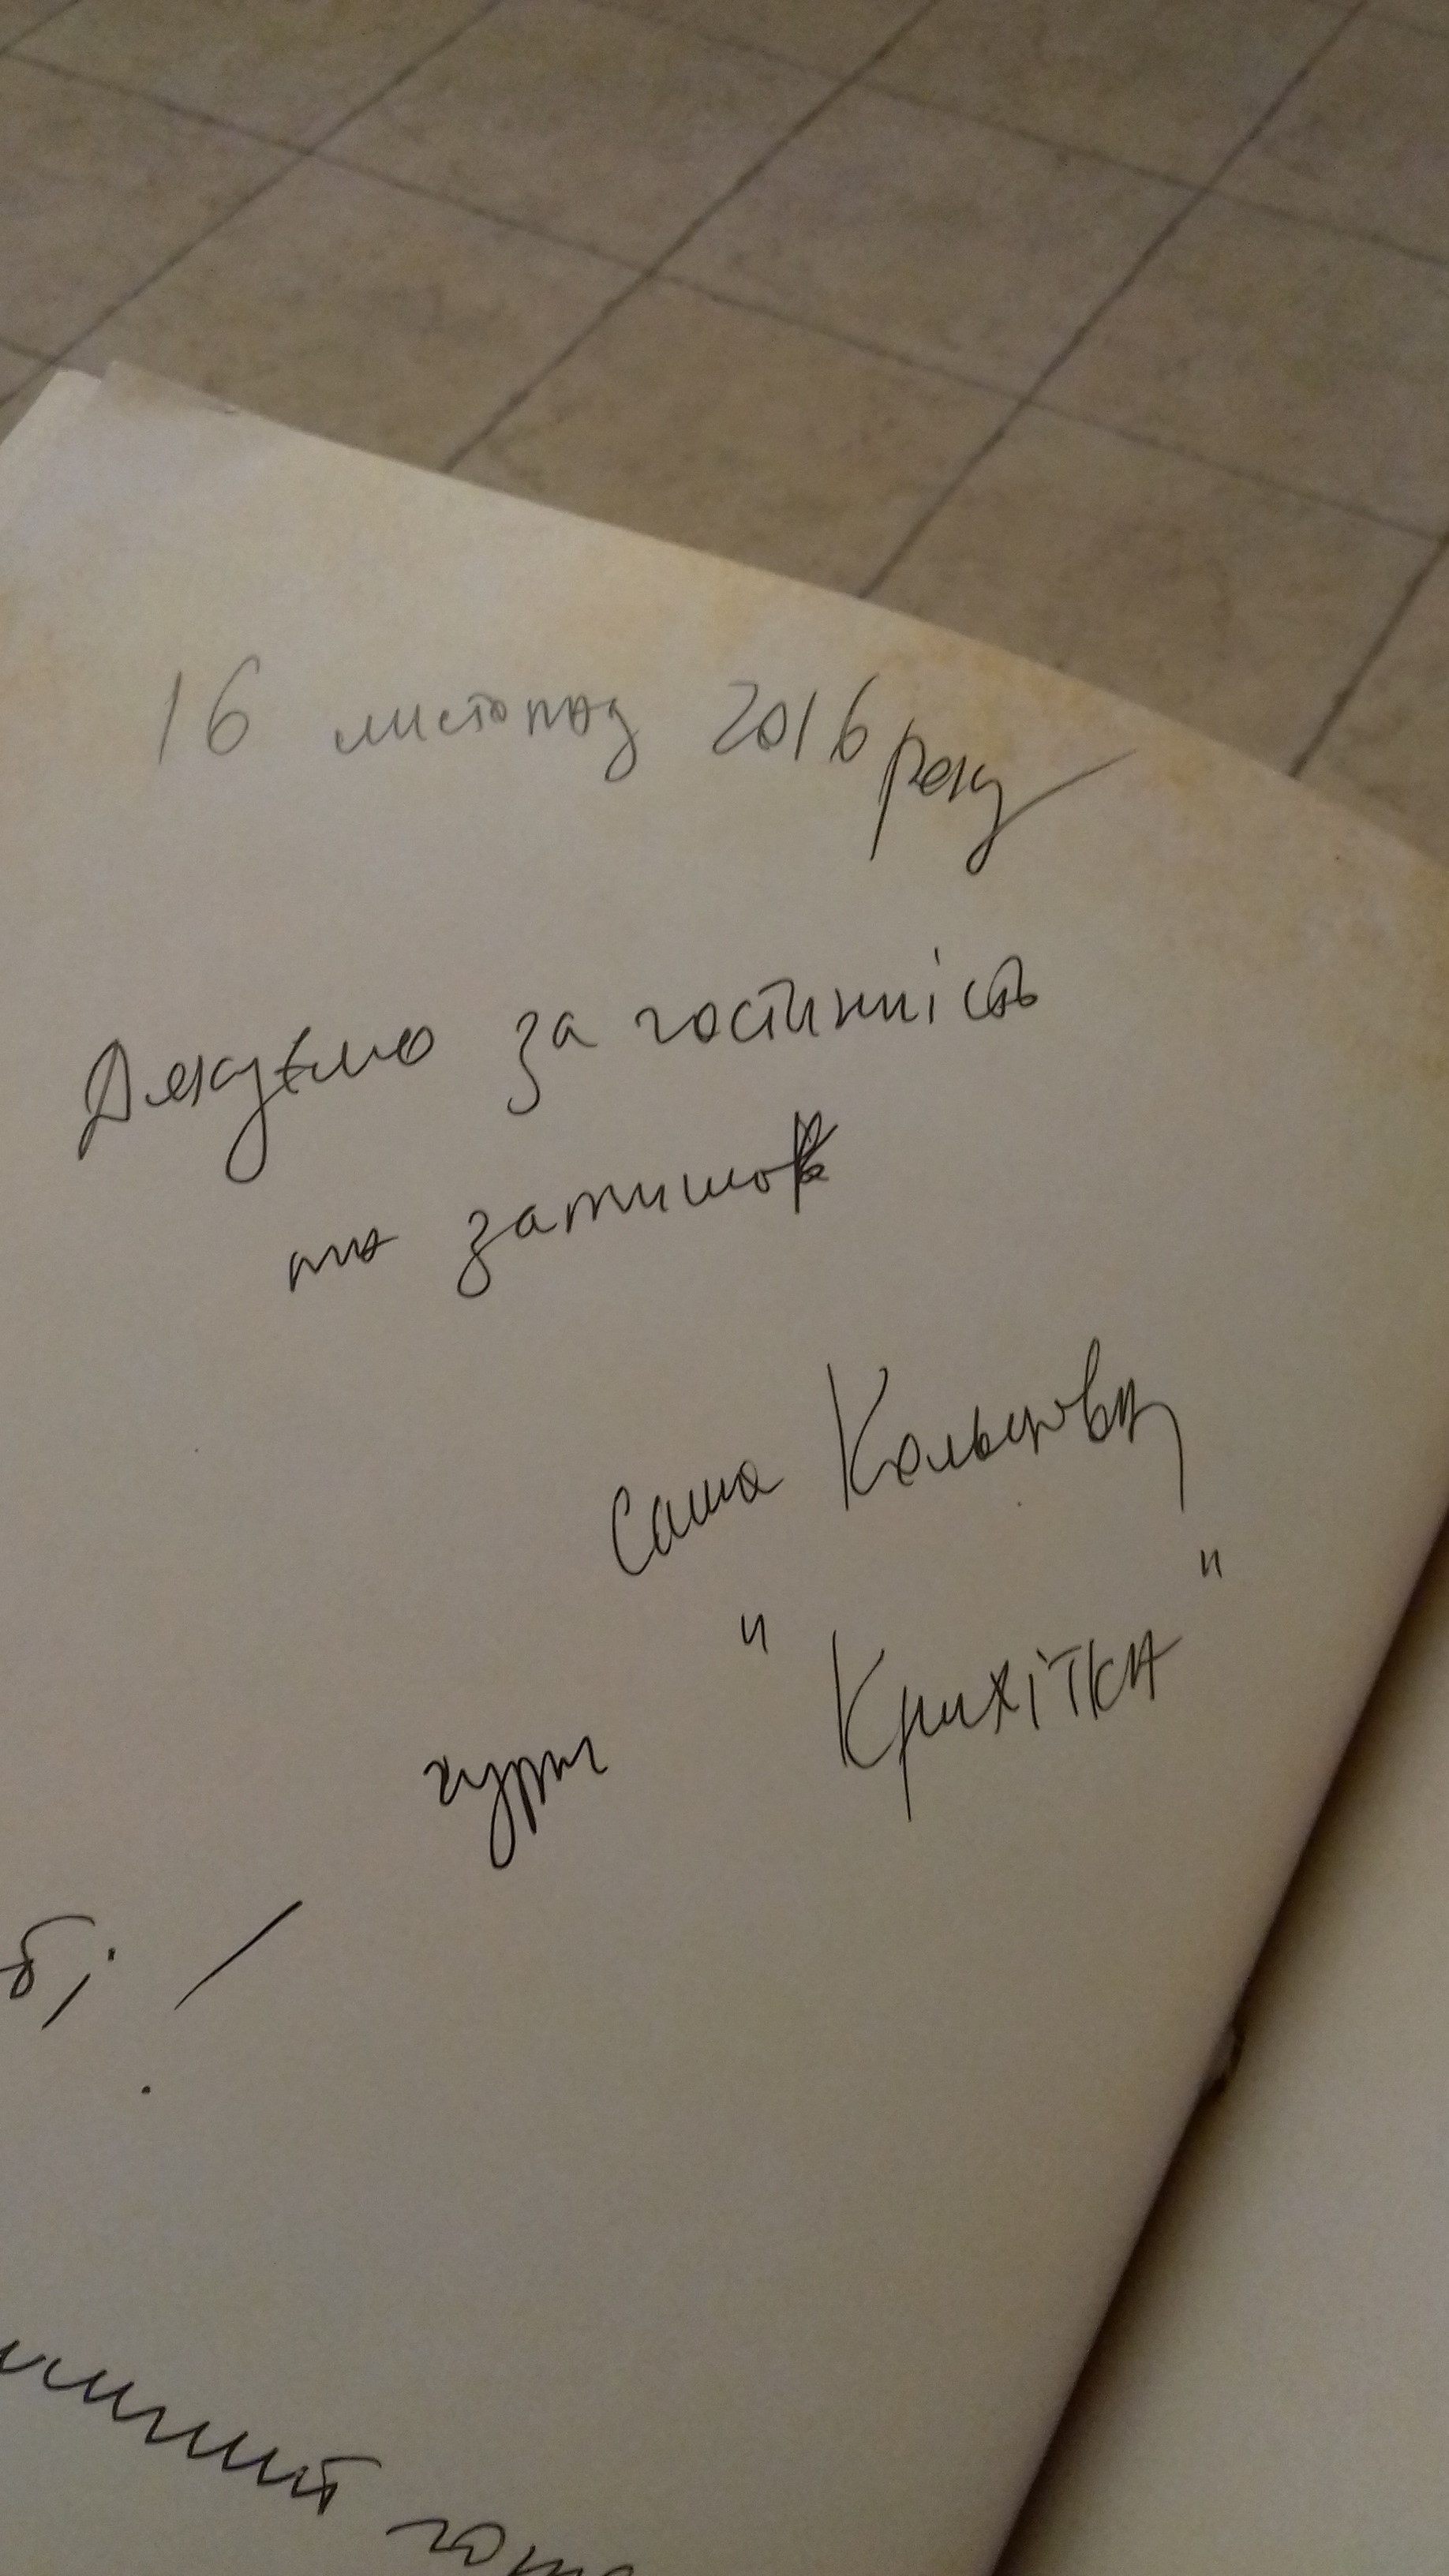 16 листопад 2016 року
Дякуємо за гостинність
та затишок
Саша Кольцова
гурт "Крихітка"